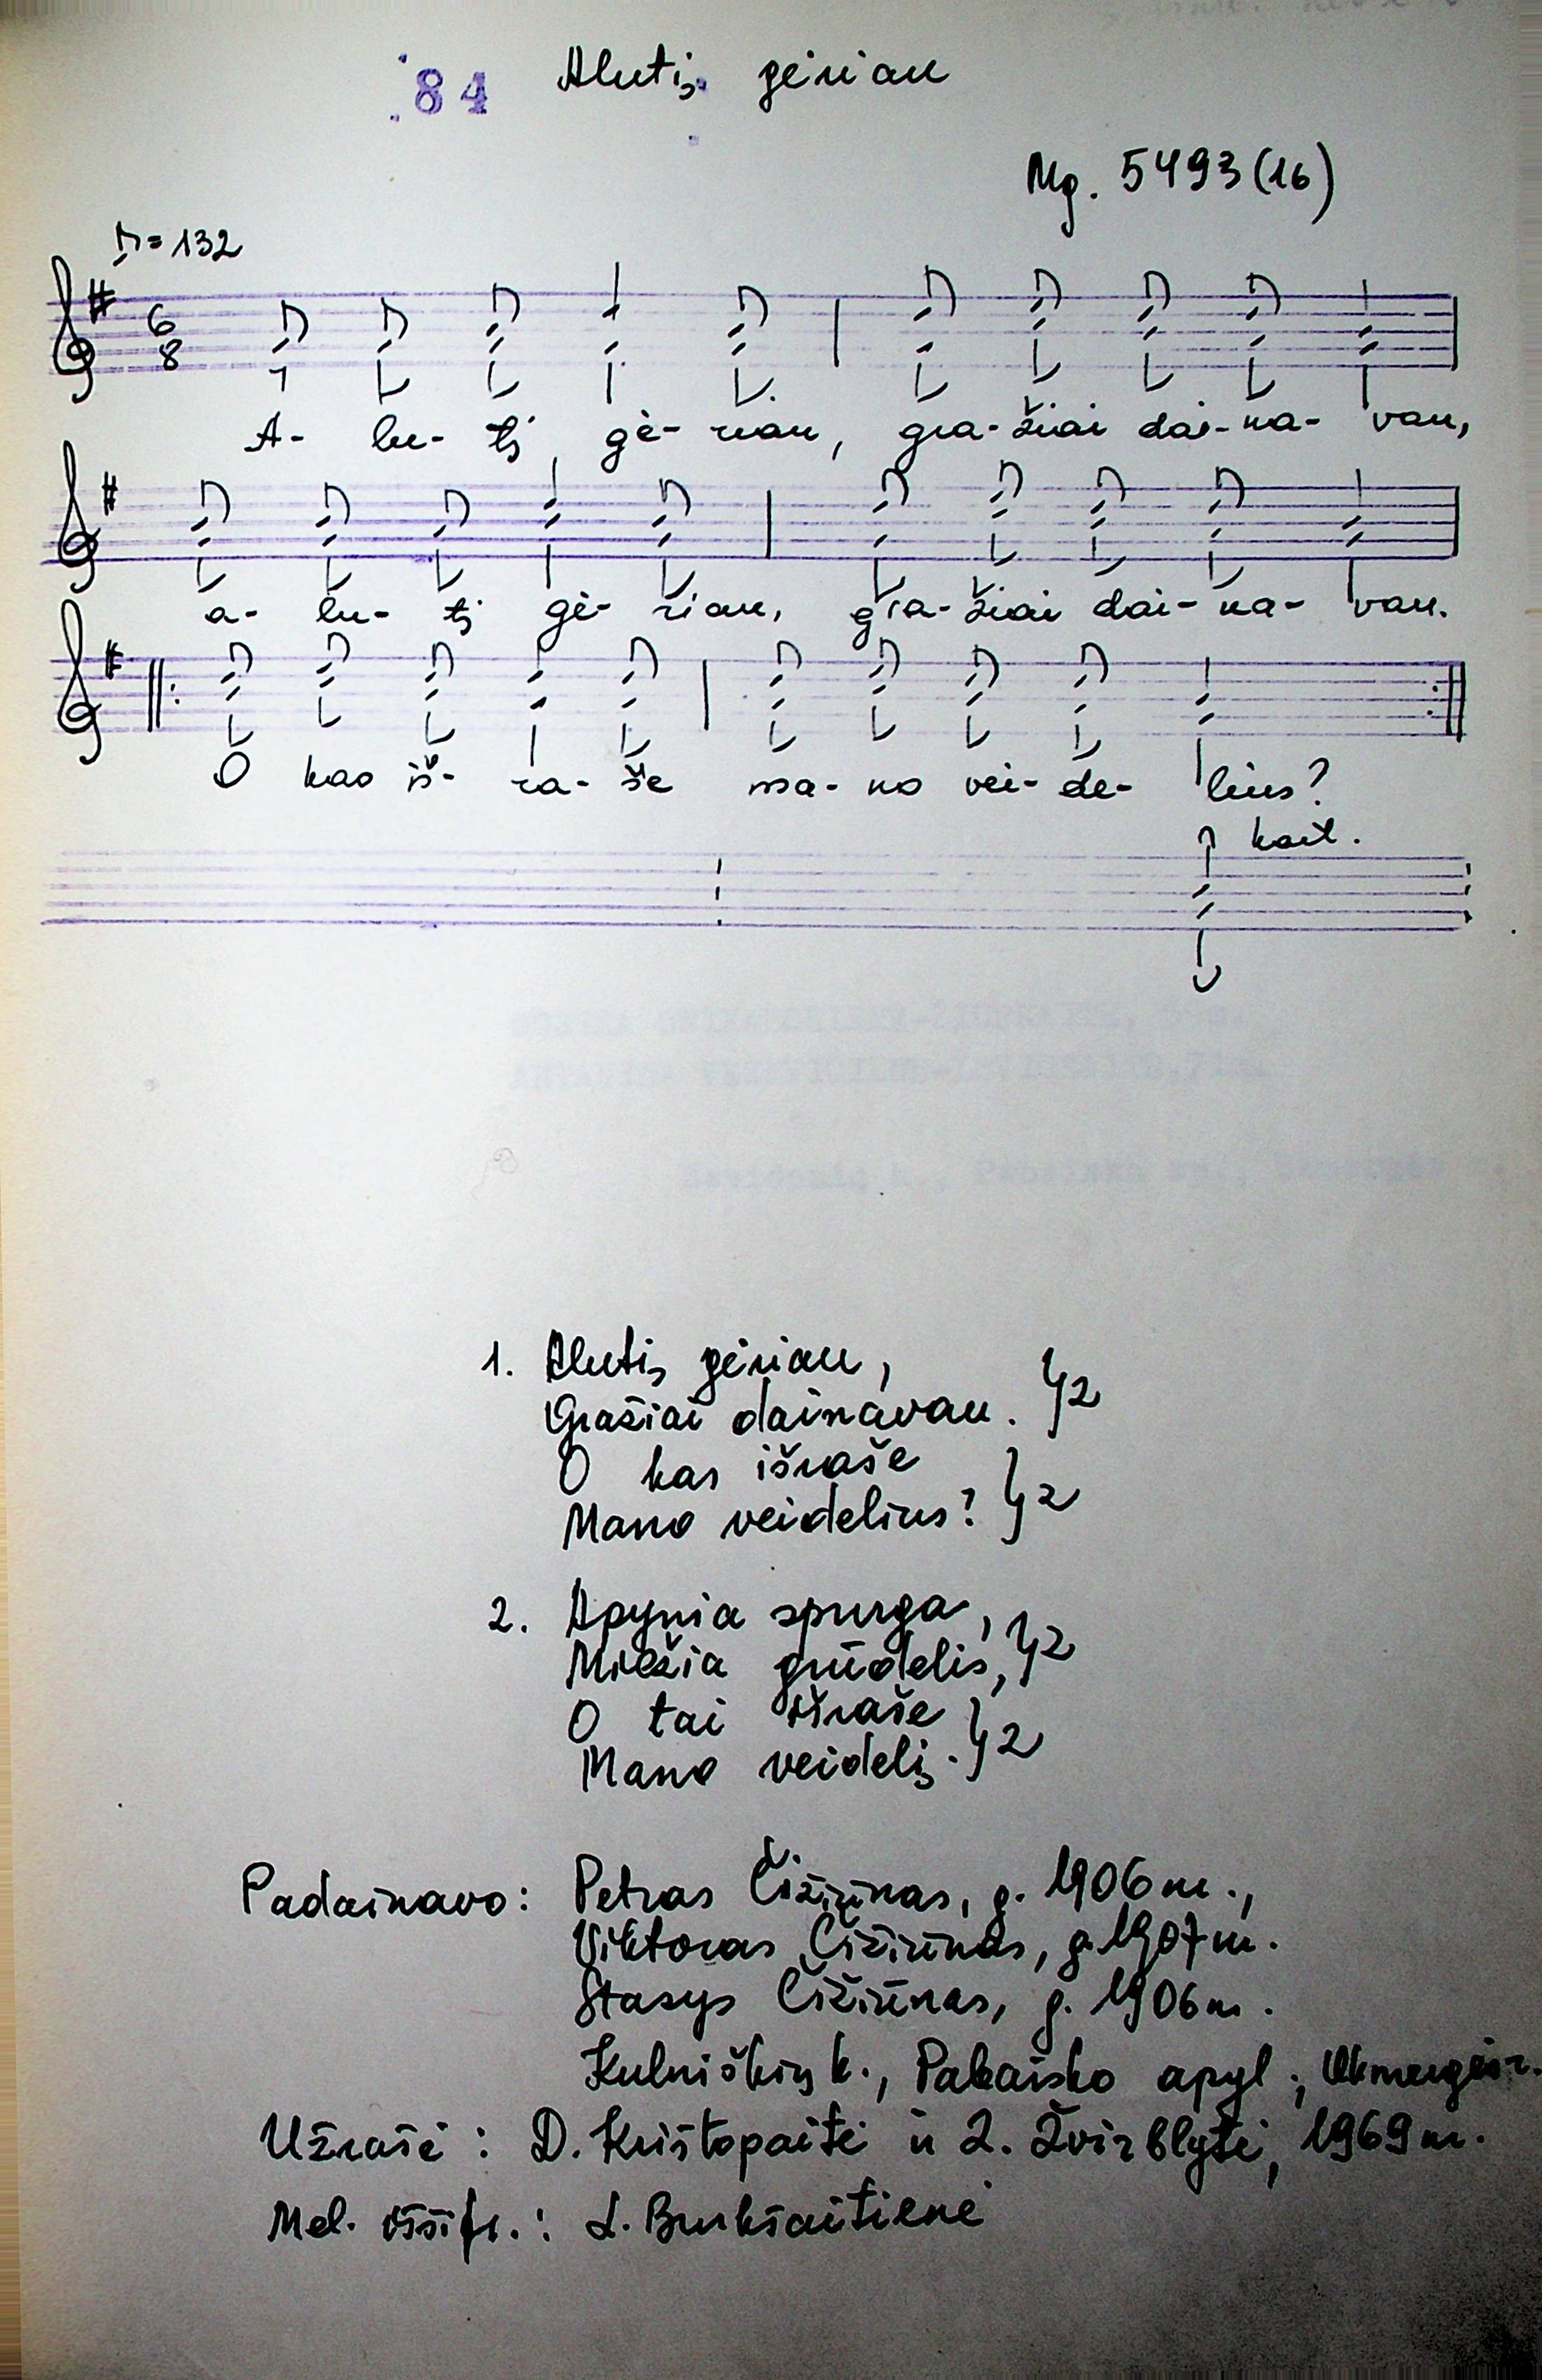 84 Alutį gėriau
Mg. 5493(16)
♪=132
6
8
A- lu- tį gė- riau, gra- žiai dai- na- vau,
a- lu- tį gė- riau, gra- žiai dai- na- vau.
O kas iš- ra- še ma- no vei- de- lius?
kart.
1. Alutį gėriau,
Gražiai dainavau. }2
O kas išraše
Mano veidelius? }2
2. Apynia spurga,
Miežia grūdelis, }2
O tai išraše
Mano veidelį. }2
Padainavo: Petras Čižiūnas, g. 1906 m.,
Viktoras Čižiūnas, g. 1907 m.
Stasys Čižiūnas, g. 1906 m.
Kulniškių k., Pabaisko apyl., Ukmergės r.
Užrašė: D. Krištopaitė ir L. Žvirblytė, 1969 m.
Mel. iššifr.: L. Burkšaitienė